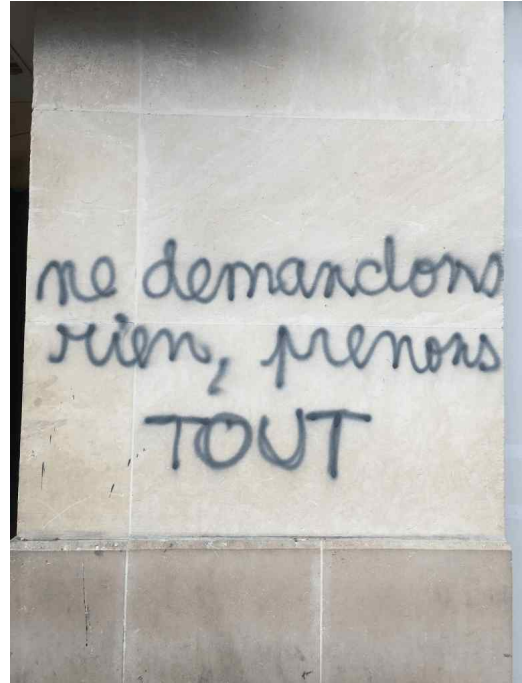 ne demandons
rien, prenons
TOUT